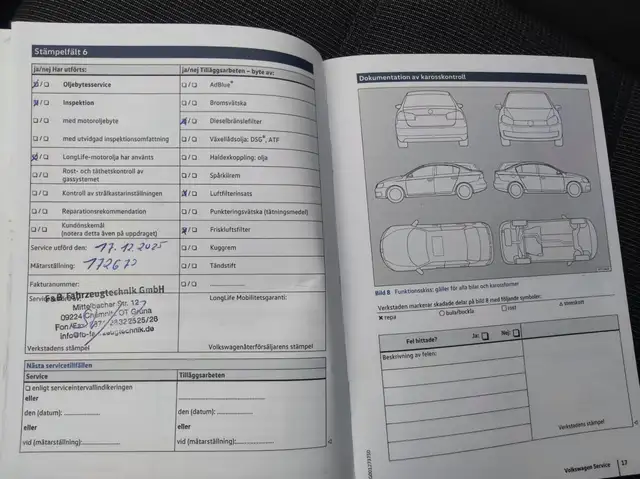 Stämpelfält 6
ja/nej Har utförts:
☒/☐ Oljebytesservice
☒/☐ Inspektion
☐/☐ med motoroljebyte
☐/☐ med utvidgad inspektionsomfattning
☒/☐ LongLife-motorolja har använts
☐/☐ Rost- och täthetskontroll av
gassystemet
☐/☐ Kontroll av strålkastarinställningen
☐/☐ Reparationsrekommendation
☐/☐ Kundönskemål
(notera detta även på uppdraget)
Service utförd den: 17.12.2025
Mätarställning: 172670
Fakturanummer:
F&B Fahrzeugtechnik GmbH
Mittelbacher Str. 12
09224 Chemnitz OT Grüna
Verkstadens stämpel
ja/nej Tilläggsarbeten – byte av:
☐/☐ AdBlue®
☐/☐ Bromsvätska
☒/☐ Dieselbränslefilter
☐/☐ Växellådsolja: DSG®, ATF
☐/☐ Haldexkoppling: olja
☐/☐ Spårkiirem
☒/☐ Luftfilterinsats
☐/☐ Punkteringsvätska (tätningsmedel)
☒/☐ Friskluftsfilter
☐/☐ Kuggrem
☐/☐ Tändstift
☐/☐
LongLife Mobilitetsgaranti:
Volkswagenåterförsäljarens stämpel
Nästa servicetillfällen
Service
☐ enligt serviceintervallindikeringen
eller
den (datum):
eller
vid (mätarställning):
Tilläggsarbeten
den (datum):
eller
vid (mätarställning):
Dokumentation av karosskontroll
Bild 8 Funktionsskiss: gäller för alla bilar och karossformer
Verkstaden markerar skadade delar på bild 8 med följande symboler:
✕ repa
○ bula/buckla
☐ rost
△ stenskott
Fel hittade?
Ja: ☐
Nej: ☐
Beskrivning av felen:
Verkstadens stämpel
Volkswagen Service 17